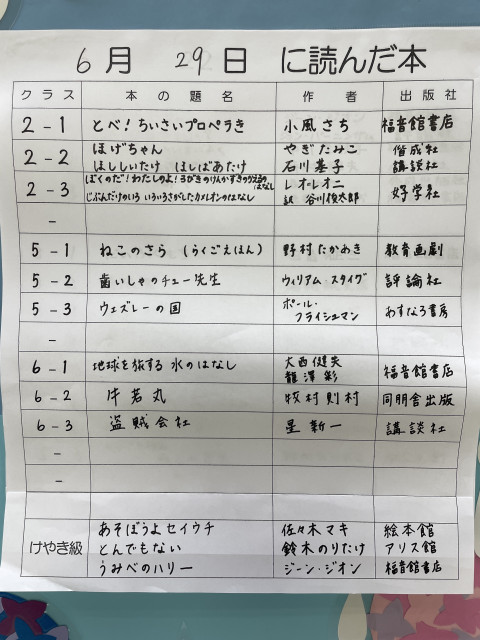 6月 29日 に読んだ本
クラス 本の題名 作者 出版社
2-1 とべ!ちいさいプロペラき 小風さち 福音館書店
2-2 ほげちゃん やぎたみこ 偕成社
ほししいたけ ほしばあたけ 石川基子 講談社
2-3 ぼくのだ!わたしのよ!3びきのけんかずきのかえるのはなし レオ・レオニ 好学社
じぶんだけのいろ いろいろさがしたカメレオンのはなし 訳 谷川俊太郎
-
5-1 ねこのさら(らくごえほん) 野村たかあき 教育画劇
5-2 歯いしゃのチュー先生 ウィリアム・スタイグ 評論社
5-3 ウェズレーの国 ポール・フライシュマン あすなろ書房
-
6-1 地球を旅する水のはなし 大西健夫 福音館書店
龍澤彩
6-2 牛若丸 牧村則村 同朋舎出版
6-3 盗賊会社 星新一 講談社
-
-
けやき級 あそぼうよセイウチ 佐々木マキ 絵本館
とんでもない 鈴木のりたけ アリス館
うみべのハリー ジーン・ジオン 福音館書店